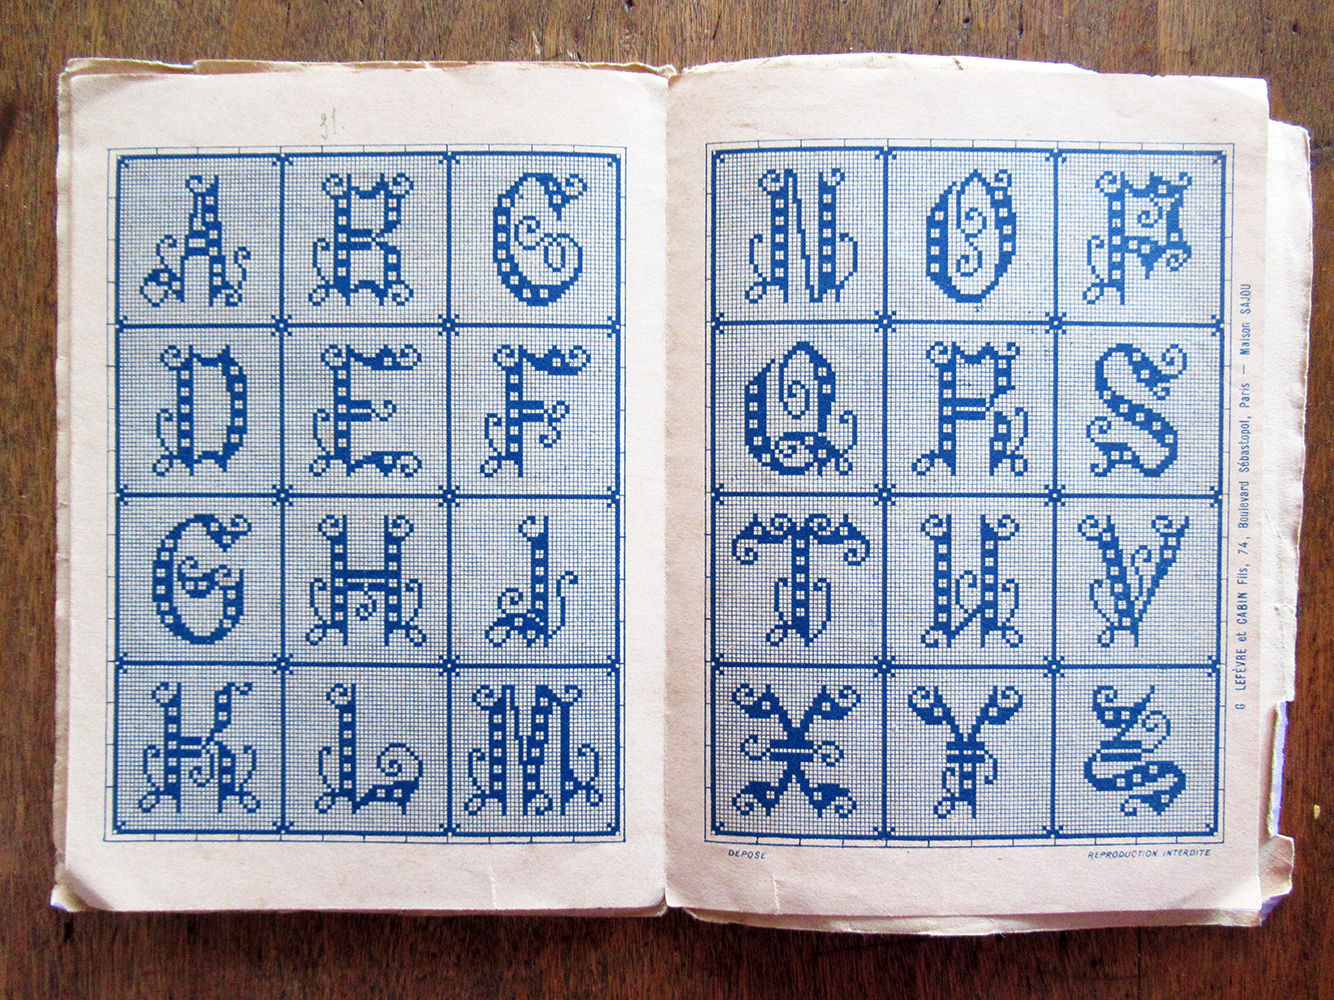 31.
A B C
D E F
G H I
K L M
N O P
Q R S
T U V
X Y Z
G LEFÈVRE et CABIN Fils, 74, Boulevard Sébastopol, Paris — Maison SAJOU
DÉPOSÉ
REPRODUCTION INTERDITE